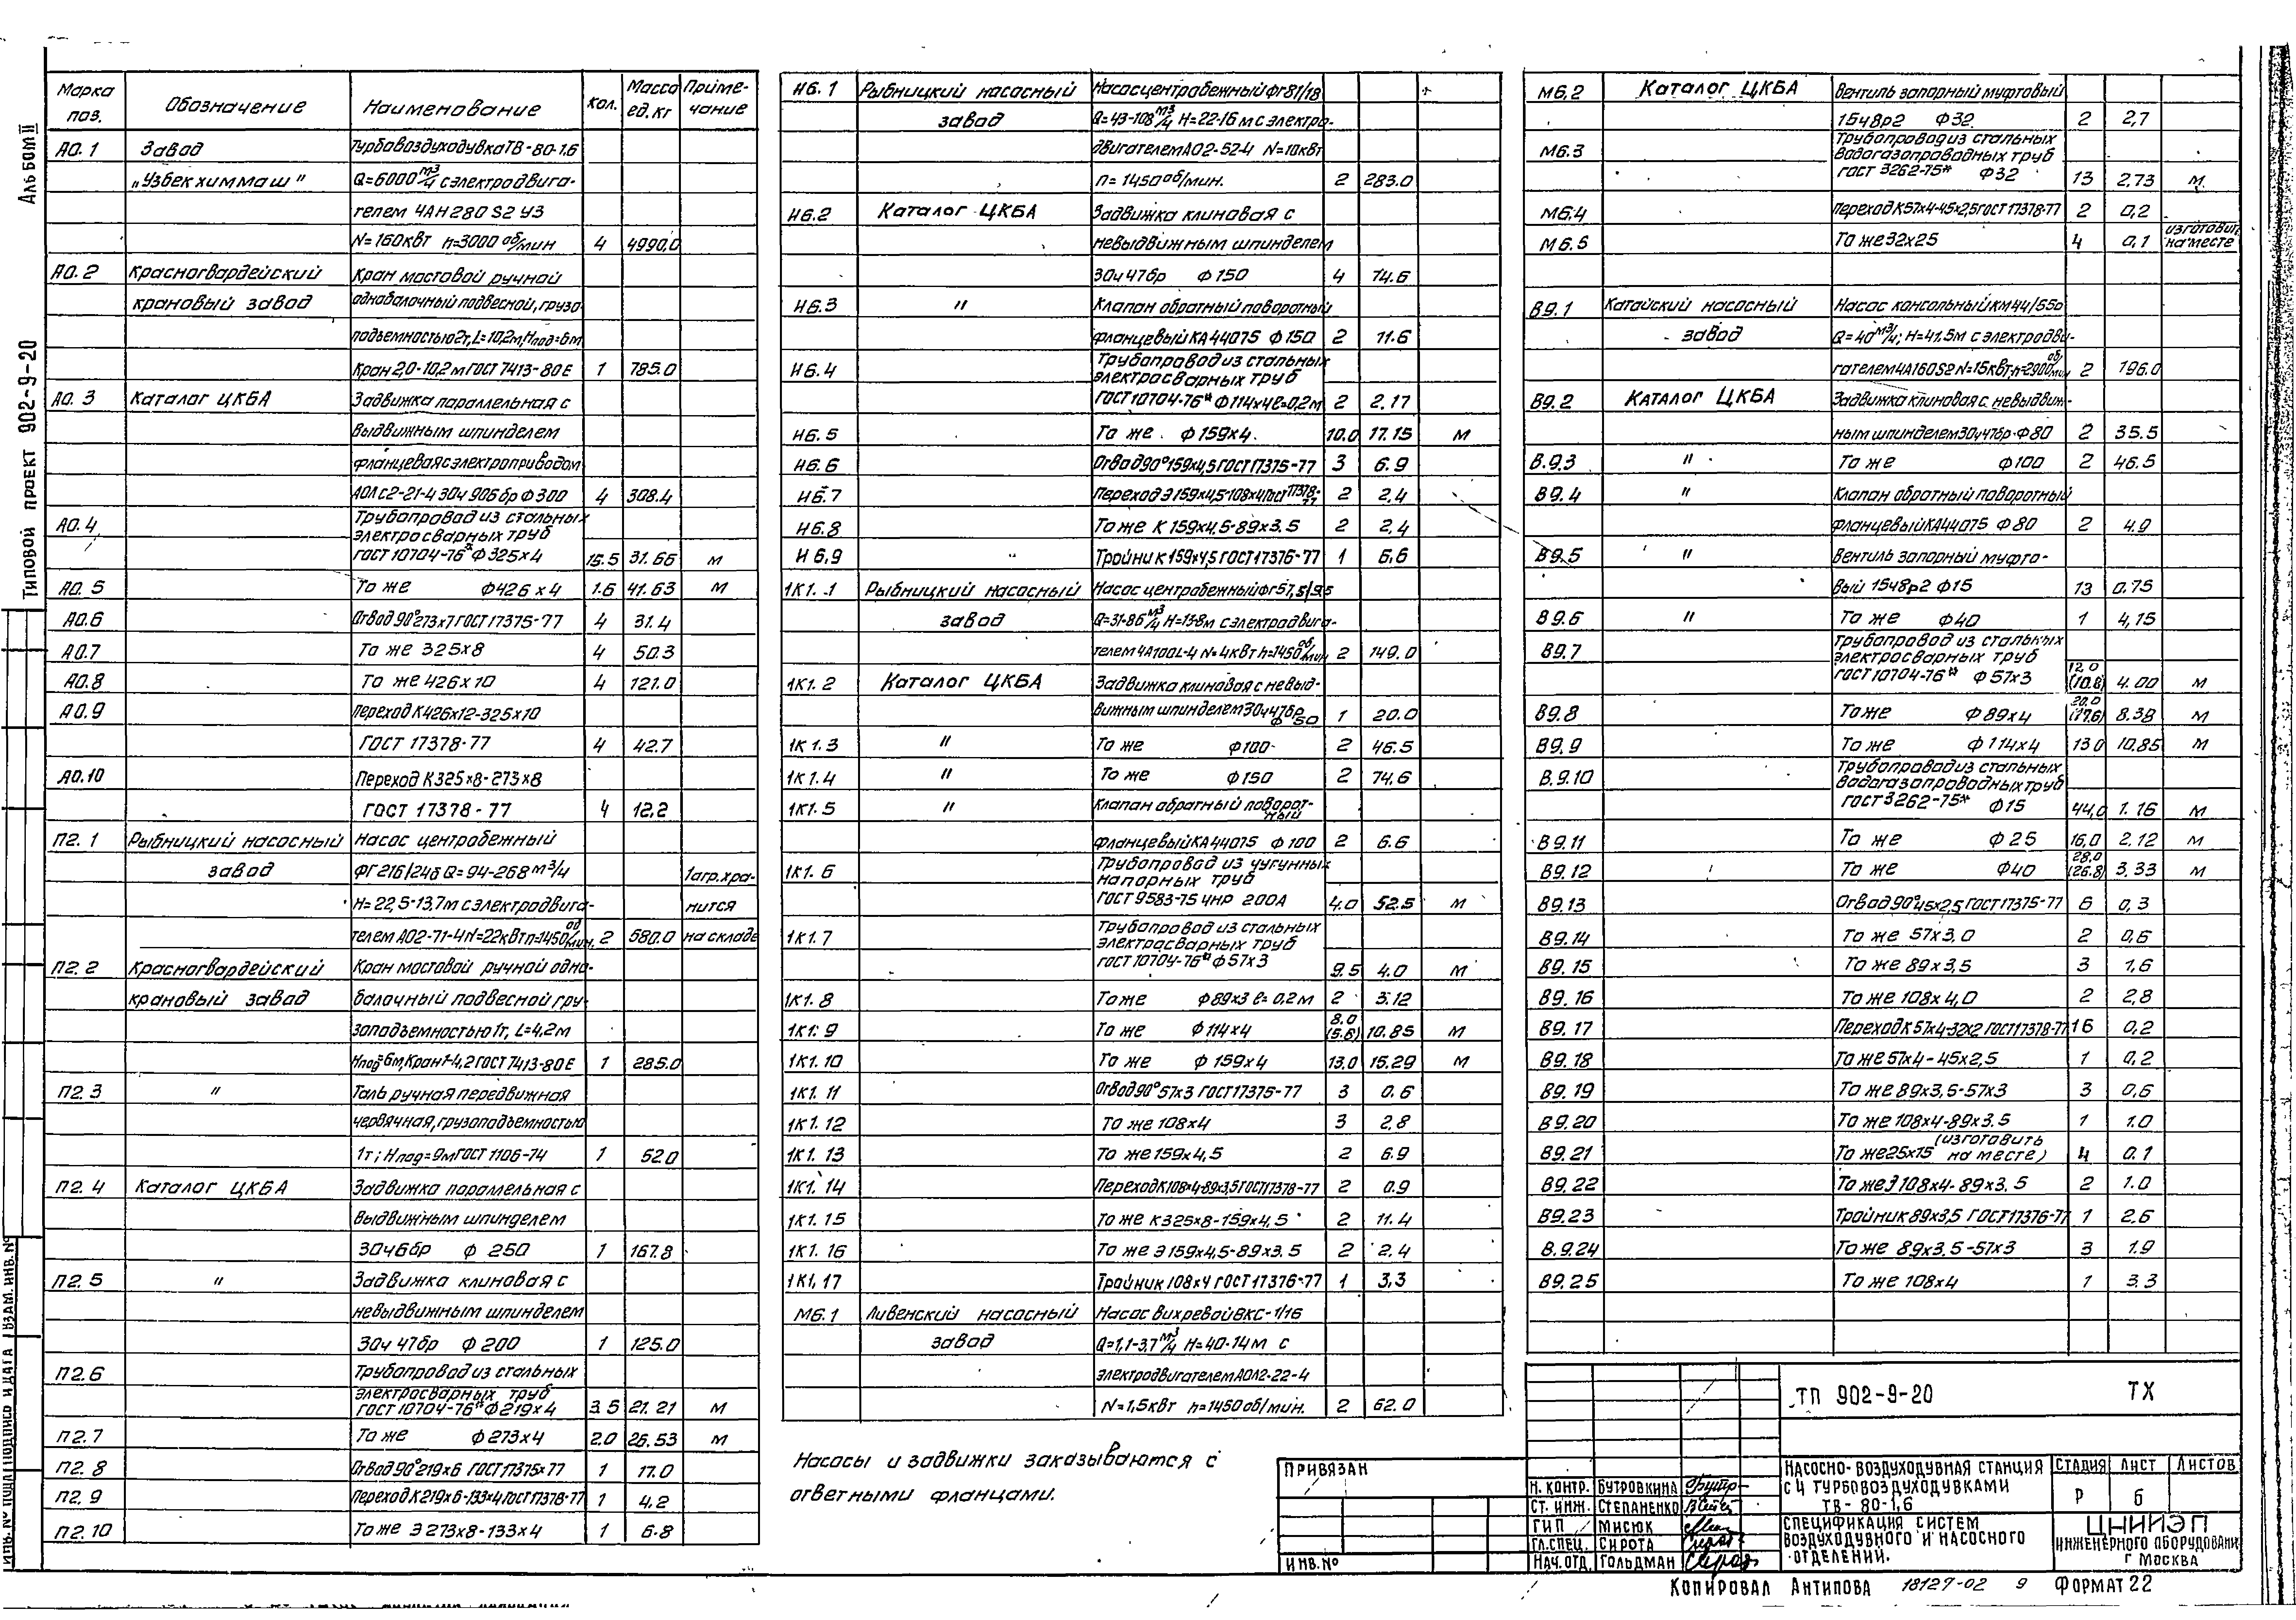 Альбом II
Типовой проект 902-9-20
Марка поз. Обозначение Наименование Кол. Масса ед. кг Примечание
А0.1 Завод Турбовоздуходувка ТВ-80-1,6
„Узбекхиммаш" Q=6000 м3/ч с электродвига-
телем 4АН280 S2 У3
N=160квт n=3000 об/мин 4 4990,0
А0.2 Красногвардейский Кран мостовой ручной
крановый завод однобалочный подвесной, грузо-
подъемностью 2т, L=10,2м, Нпод=6м
Кран 2,0-10,2м ГОСТ 7413-80Е 1 785.0
А0.3 Каталог ЦКБА Задвижка параллельная с
выдвижным шпинделем
фланцевая с электроприводом
АОЛС2-21-4 30ч 906 бр ф300 4 308.4
А0.4 Трубопровод из стальных
электросварных труб
ГОСТ 10704-76* ф325х4 15.5 31.66 м
А0.5 То же ф426х4 1.6 41.63 м
А0.6 Отвод 90° 273х7 ГОСТ 17375-77 4 31.4
А0.7 То же 325х8 4 50.3
А0.8 То же 426х10 4 121.0
А0.9 Переход К426х12-325х10
ГОСТ 17378-77 4 42.7
А0.10 Переход К325х8-273х8
ГОСТ 17378-77 4 12,2
П2.1 Рыбницкий насосный Насос центробежный
завод ФГ 216/24б Q=94-268 м3/ч 1 агр. хра-
Н=22,5-13,7м с электродвига- нится
телем АО2-71-4 N=22квт n=1450 об/мин. 2 580.0 на складе
П2.2 Красногвардейский Кран мостовой ручной одно-
крановый завод балочный подвесной гру-
зоподъемностью 1т, L=4,2м
Нпод=6м, Кран 1-4,2 ГОСТ 7413-80Е 1 285.0
П2.3 " Таль ручная передвижная
червячная, грузоподъемностью
1т; Нпод=9м ГОСТ 1106-74 1 52.0
П2.4 Каталог ЦКБА Задвижка параллельная с
выдвижным шпинделем
30ч6бр ф 250 1 167.8
П2.5 " Задвижка клиновая с
невыдвижным шпинделем
30ч 47бр ф 200 1 125.0
П2.6 Трубопровод из стальных
электросварных труб
ГОСТ 10704-76* ф219х4 3.5 21.21 м
П2.7 То же ф273х4 2.0 26.53 м
П2.8 Отвод 90° 219х6 ГОСТ 17375х77 1 17.0
П2.9 Переход К219х6-133х4 ГОСТ 17378-77 1 4,2
П2.10 То же Э 273х8-133х4 1 6.8
Н6.1 Рыбницкий насосный Насос центробежный ФГ81/18
завод Q=43-108 м3/ч Н=22-16 м с электро-
двигателем АО2-52-4 N=10квт
n=1450 об/мин. 2 283.0
Н6.2 Каталог ЦКБА Задвижка клиновая с
невыдвижным шпинделем
30ч 47бр ф150 4 74.6
Н6.3 " Клапан обратный поворотный
фланцевый КА44075 ф150 2 11.6
Н6.4 Трубопровод из стальных
электросварных труб
ГОСТ 10704-76* ф114х4 ℓ=0,2м 2 2.17
Н6.5 То же ф159х4. 10.0 17.15 м
Н6.6 Отвод 90° 159х4,5 ГОСТ 17375-77 3 6.9
Н6.7 Переход Э 159х4,5-108х4 ГОСТ 17378-77 2 2,4
Н6.8 То же К 159х4,5-89х3.5 2 2,4
Н6,9 " Тройник 159х4,5 ГОСТ 17376-77 1 6.6
1К1.1 Рыбницкий насосный Насос центробежный ФГ 57,5/9,5
завод Q=31-86 м3/ч Н=13-8м с электродвига-
телем 4А100L-4 N=4квт n=1450 об/мин 2 149.0
1К1.2 Каталог ЦКБА Задвижка клиновая с невыд-
вижным шпинделем 30ч47бр ф 50 1 20.0
1К1.3 " То же ф100 2 46.5
1К1.4 " То же ф150 2 74,6
1К1.5 " Клапан обратный поворот-
ный
фланцевый КА44075 ф100 2 6.6
1К1.6 Трубопровод из чугунных
напорных труб
ГОСТ 9583-75 ЧНР 200А 4.0 52.5 м
1К1.7 Трубопровод из стальных
электросварных труб
ГОСТ 10704-76* ф57х3 9.5 4.0 м
1К1.8 То же ф89х3 ℓ=0,2м 2 3.12
1К1.9 То же ф114х4 8.0 (5.6) 10.85 м
1К1.10 То же ф 159х4 13,0 15.29 м
1К1.11 Отвод 90° 57х3 ГОСТ 17375-77 3 0.6
1К1.12 То же 108х4 3 2,8
1К1.13 То же 159х4,5 2 6.9
1К1.14 Переход К108х4-89х3,5 ГОСТ 17378-77 2 0.9
1К1.15 То же К325х8-159х4,5 2 11.4
1К1.16 То же Э 159х4,5-89х3.5 2 2.4
1К1,17 Тройник 108х4 ГОСТ 17376-77 1 3,3
М6.1 Ливенский насосный Насос вихревой ВКС-1/16
завод Q=1,1-3,7 м3/ч Н=40-14м с
электродвигателем АОЛ2-22-4
N=1,5квт n=1450 об/мин. 2 62.0
Насосы и задвижки заказываются с
ответными фланцами.
М6,2 Каталог ЦКБА Вентиль запорный муфтовый
15ч8р2 ф32 2 2,7
М6.3 Трубопровод из стальных
водогазопроводных труб
ГОСТ 3262-75* ф32 13 2,73 м.
М6,4 Переход К57х4-45х2,5 ГОСТ 17378-77 2 0,2
М6.5 То же 32х25 4 0,1 изготовить на месте
В9.1 Катайский насосный Насос консольный КМ44/55а
завод Q=40 м3/ч; Н=41.5м с электродви-
гателем 4А160S2 N=15квт, n=2900 об/мин 2 196.0
В9.2 Каталог ЦКБА Задвижка клиновая с невыдвиж-
ным шпинделем 30ч47бр ф80 2 35.5
В.9.3 " То же ф100 2 46.5
В9.4 " Клапан обратный поворотный
фланцевый КА44075 ф80 2 4.9
В9.5 " Вентиль запорный муфто-
вый 15ч8р2 ф15 13 0.75
В9.6 " То же ф40 1 4,15
В9.7 Трубопровод из стальных
электросварных труб
ГОСТ 10704-76* ф57х3 12.0 (10.8) 4.00 м
В9.8 То же ф89х4 20.0 (17.6) 8.38 м
В9.9 То же ф114х4 13.0 10.85 м
В.9.10 Трубопровод из стальных
водогазопроводных труб
ГОСТ 3262-75* ф15 44,0 1.16 м
В9.11 То же ф25 16,0 2.12 м
В9.12 То же ф40 28.0 (26.8) 3,33 м
В9.13 Отвод 90° 45х2,5 ГОСТ 17375-77 6 0,3
В9.14 То же 57х3,0 2 0,6
В9.15 То же 89х3,5 3 1,6
В9.16 То же 108х4,0 2 2,8
В9.17 Переход К57х4-32х2 ГОСТ 17378-77 16 0,2
В9.18 То же 57х4-45х2,5 1 0,2
В9.19 То же 89х3,5-57х3 3 0,6
В9.20 То же 108х4-89х3.5 1 1.0
В9.21 То же 25х15 (изготовить на месте) 4 0.1
В9.22 То же Э 108х4-89х3,5 2 1.0
В9.23 Тройник 89х3,5 ГОСТ 17376-77 1 2.6
В.9.24 То же 89х3.5-57х3 3 1.9
В9.25 То же 108х4 1 3.3
Привязан
Инв. №
ТП 902-9-20 ТХ
Н. контр. Бутровкина
Ст. инж. Степаненко
ГИП Мисюк
Гл. спец. Сирота
Нач. отд. Гольдман
Насосно-воздуходувная станция
с 4 турбовоздуходувками
ТВ-80-1,6
Стадия Лист Листов
Р 6
Спецификация систем
воздуходувного и насосного
отделений.
ЦНИИЭП
инженерного оборудования
г Москва
Копировал Антипова 18127-02 9 Формат 22
Инв. № подл Подпись и дата Взам. инв. №